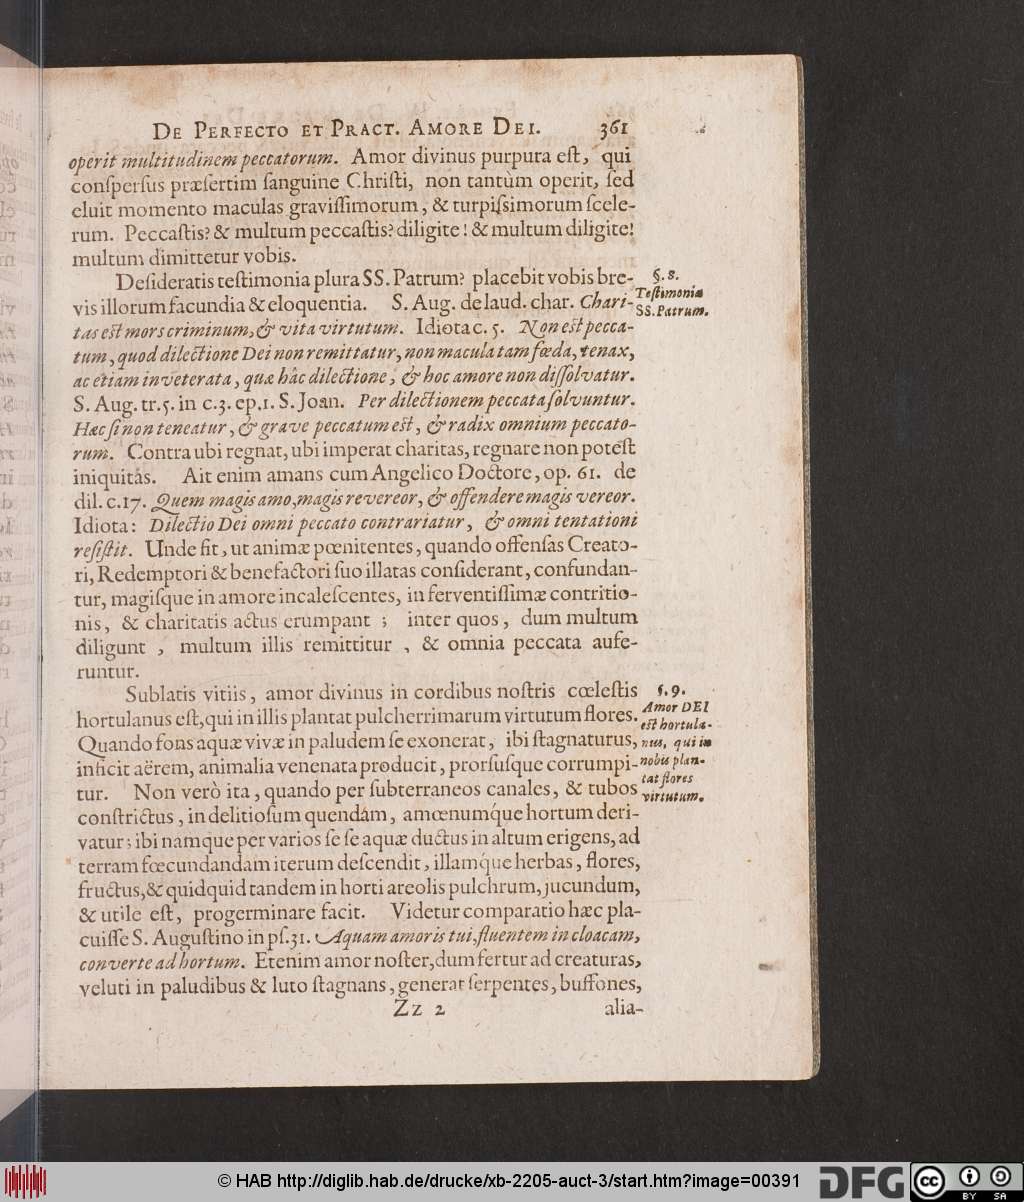 DE PERFECTO ET PRACT. AMORE DEI. 361
operit multitudinem peccatorum. Amor divinus purpura eſt, qui
conſperſus præſertim ſanguine Chriſti, non tantùm operit, ſed
eluit momento maculas graviſſimorum, & turpiſsimorum ſcele-
rum. Peccaſtis? & multum peccaſtis? diligite! & multum diligite!
multum dimittetur vobis.
Deſideratis teſtimonia plura SS. Patrum? placebit vobis bre-
vis illorum facundia & eloquentia. S. Aug. de laud. char. Chari-
tas eſt mors criminum, & vita virtutum. Idiota c. 5. Non eſt pecca-
tum, quod dilectione Dei non remittatur, non macula tam fœda, tenax,
ac etiam inveterata, quæ hâc dilectione, & hoc amore non diſſolvatur.
S. Aug. tr. 5. in c. 3. ep. 1. S. Joan. Per dilectionem peccata ſolvuntur.
Hæc ſi non teneatur, & grave peccatum eſt, & radix omnium peccato-
rum. Contra ubi regnat, ubi imperat charitas, regnare non poteſt
iniquitas. Ait enim amans cum Angelico Doctore, op. 61. de
dil. c. 17. Quem magis amo, magis revereor, & offendere magis vereor.
Idiota: Dilectio Dei omni peccato contrariatur, & omni tentationi
reſiſtit. Unde fit, ut animæ pœnitentes, quando offenſas Creato-
ri, Redemptori & benefactori ſuo illatas conſiderant, confundan-
tur, magiſque in amore incaleſcentes, in ferventiſſimæ contritio-
nis, & charitatis actus erumpant; inter quos, dum multum
diligunt, multum illis remittitur, & omnia peccata aufe-
runtur.
§. 8.
Teſtimonia
SS. Patrum.
Sublatis vitiis, amor divinus in cordibus noſtris cœleſtis
hortulanus eſt, qui in illis plantat pulcherrimarum virtutum flores.
Quando fons aquæ vivæ in paludem ſe exonerat, ibi ſtagnaturus,
inficit aërem, animalia venenata producit, prorſuſque corrumpi-
tur. Non verò ita, quando per ſubterraneos canales, & tubos
conſtrictus, in delitioſum quendam, amœnumq́ue hortum deri-
vatur; ibi namque per varios ſe ſe aquæ ductus in altum erigens, ad
terram fœcundandam iterum deſcendit, illamq́ue herbas, flores,
fructus, & quidquid tandem in horti areolis pulchrum, jucundum,
& utile eſt, progerminare facit. Videtur comparatio hæc pla-
cuiſſe S. Auguſtino in pſ. 31. Aquam amoris tui, fluentem in cloacam,
converte ad hortum. Etenim amor noſter, dum fertur ad creaturas,
veluti in paludibus & luto ſtagnans, generat ſerpentes, buffones,
§. 9.
Amor DEI
eſt hortula-
nus, qui in
nobis plan-
tat flores
virtutum.
Zz 2 alia-
© HAB http://diglib.hab.de/drucke/xb-2205-auct-3/start.htm?image=00391
DFG
cc
BY SA